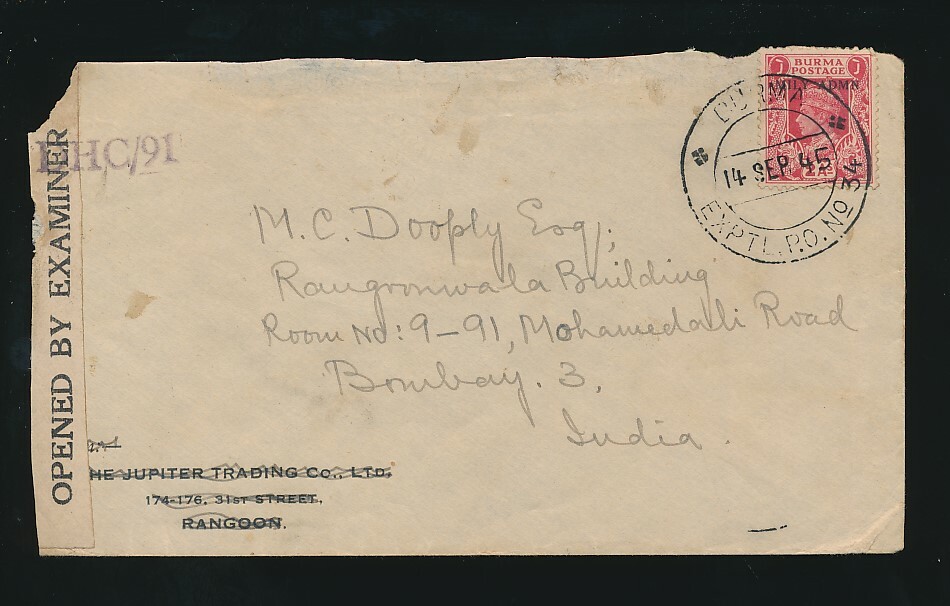 BURMA
POSTAGE
MILY ADMN
BURMA
14 SEP 45
EXPTL. P.O. No 34
DHC/91
OPENED BY EXAMINER
M.C. Dooply Esq;
Rangoonwala Building
Room No: 9-91, Mohamedali Road
Bombay. 3,
India.
HE JUPITER TRADING CO., LTD.
174-176, 31ST STREET,
RANGOON.